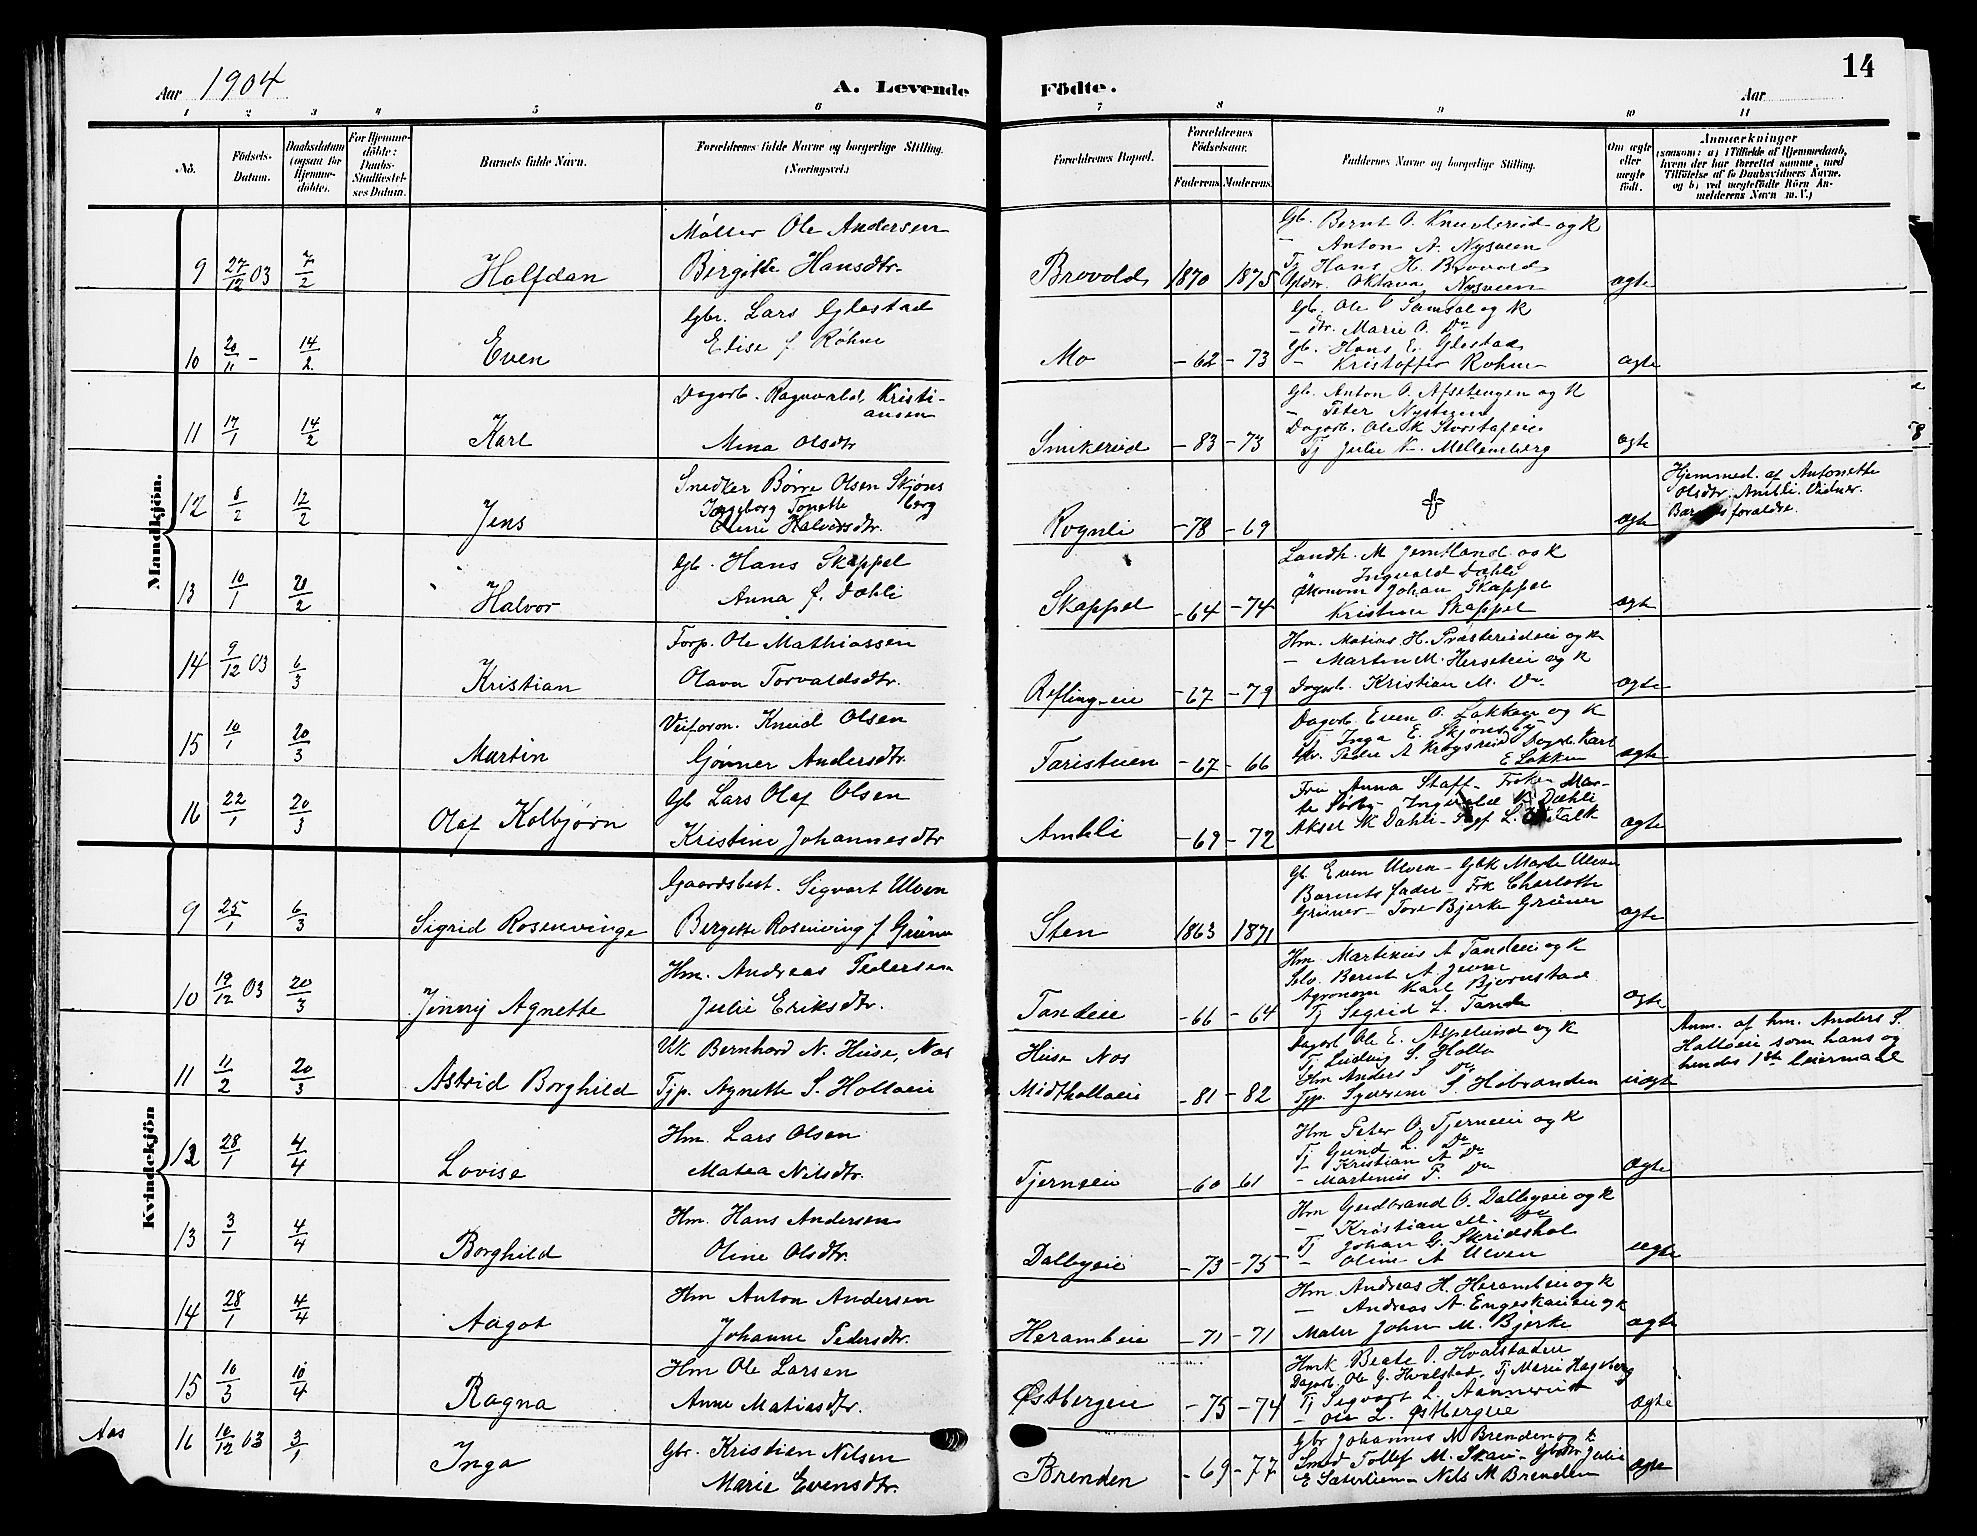 14
Aar 1904
A. Levende Födte.
Aar
1 2 3 4 5 6 7 8 9 10 11
No.
Födsels-Datum.
Daabsdatum (ogsaa for Hjemme-döbte).
For Hjemme-döbte: Daabs-Stadfæstel-ses Datum.
Barnets fulde Navn.
Forældrenes fulde Navne og borgerlige Stilling.
(Næringsvei.)
Forældrenes Bopæl.
Forældrenes Födselsaar.
Faderens. Moderens.
Faddernes Navne og borgerlige Stilling.
Om ægte eller uægte født.
Anmærkninger
(saasom: a) i Tilfælde af Hjemmedaab, hvem der har forrettet samme, med Tilföielse af to Daabsvidners Navne. og b) ved uægtefödte Börn An-melderens Navn m. V.)
Mandkjön.
9 27/12 03 7/2 Halfdan
Møller Ole Andersen
Birgitte Hansdtr.
Brovold 1870 1875
Gb. Bernt O. Knevlereid og k
- Anton A. Nysveen
Tj Hans H. Brovold
Oktava Nysveen
ægte
10 20/11 - 14/2 Even
Gbr. Lars Glestad
Elise f. Røhne
Mo -62 -73
Gb. Ole O Samsal og k
- dtr. Marie O. Do
Gb. Hans E. Glestad
- Kristoffer Røhne
ægte
11 17/1 14/2 Karl
Dagarb. Ragnvald Kristi-
ansen
Mina Olsdtr
Smikerud -83 -73
Gb. Anton O. Afsetengen og k
- Peter Nystuen
Dagarb. Ole K Storstafeie
Tj Julie N. Mellemberg
ægte
12 8/2 12/2 Jens
Snedker Børre Olsen Skjøns
berg
Ingeborg Tonette
Oline Halvorsdtr.
Rognli -78 -69
ægte
Hjemmed. af Antonette
Olsdtr. Amhli. Vidner.
Barnets forældre.
13 10/1 20/2 Halvor
Gb. Hans Skappel
Anna f. Dæhli
Skappel -64 -74
Landh. M Jemtland og k
Ingvald Dæhli
Økonom Johan Skappel
Kristian Skappel
ægte
14 9/12 03 6/3 Kristian
Forp. Ole Mathiassen
Olava Torvaldsdtr.
Refling-eie -67 -79
Hm. Matias H. Præsterudeie og k
- Martin M. Herseteie og k
Dagarb. Kristian M. Do
ægte
15 10/1 20/3 Martin
Veiforon. Knud Olsen
Gunner Andersdtr.
Taristuen -67 -66
Dagarb. Even O. Løkken og k
Tj Inga E. Skjønsby
Peder A Krogsrud Dagb. Karl
E Løkken
ægte
16 22/1 20/3 Olaf Kolbjørn
Gb Lars Olaf Olsen
Kristine Johannesdtr
Amhli -69 -72
Fru Anna Staff - Frøken Mar-
te Sørby - Ingvald K Dæhli
Aksel K Dæhli - L. Falk
ægte
Kvindekjön
9 25/1 6/3 Sigrid Rosenvinge
Gaardsbest. Sigvart Ulven
Bergitte Rosenving f Grüner
Sten 1863 1871
Gb Even Ulven - Gbk Marte Ulven
Barnets fader - Frk Charlotte
Grüner - Tore Bjerke Grüner
ægte
10 19/12 03 20/3 Jenny Agnette
Hm. Andreas Pedersen
Julie Eriksdtr.
Tandeie -66 -64
Hm. Martinius A Tandeie og k
Selv. Bernt A Jevne
Agronom Karl Bjørnstad
Tj Sigrid L. Tande
ægte
11 11/2 20/3 Astrid Borghild
Uk Bernhard N. Huse, Nes
Tjp. Agnette S. Holloeie
Huse Nes
Midthalloeie -81 -82
Dagarb Ole E. Aspelund og k
Tj Ludvig S. Hollo
Hm Anders S Do
Tjp. Syverine S. Høbranden
uægte
Anm. af hm. Anders S.
Holloeie som hans og
hendes 1ste leiermaal
12 28/1 4/4 Lovise
Hm. Lars Olsen
Matea Nilsdtr.
Tjernseie -60 -61
Hm Peter O. Tjernseie og k
Tj Gund L. Do
- Kristian A Do
- Martinius P. Do
ægte
13 3/1 4/4 Borghild
Hm. Hans Andersen
Oline Olsdtr.
Dalbyeie -73 -75
Hm Gudbrand O. Dalbyeie og k
- Kristian M. Do
Tj Johan G. Skridshol
- Oline A Ulven
ægte
14 28/1 4/4 Aagot
Hm Anton Andersen
Johanne Pedersdtr.
Herambeie -71 -71
Hm. Andreas H. Herambeie og k
- Andreas A. Engeskaueie og k
Maler John M. Bjerke
ægte
15 10/3 10/4 Ragna
Hm Ole Larsen
Anne Matiasdtr.
Østbergeie -75 -74
Hmk Beate O. Hvalstadeie
Dagarb. Ole G. Hvalstad. Tj Marie Hageberg
Tj Sigvart L. Aannerud
- Ole L. Østbergeie
ægte
Aas
16 10/12 03 3/1 Inga
Gbr. Kristian Nilsen
Marie Evensdtr.
Brenden -69 -77
Gbr Johannes M Brenden og k
Smed Tollef M. Skau - Gbdtr Julie
E Sæterlien - Nils M Brenden
ægte